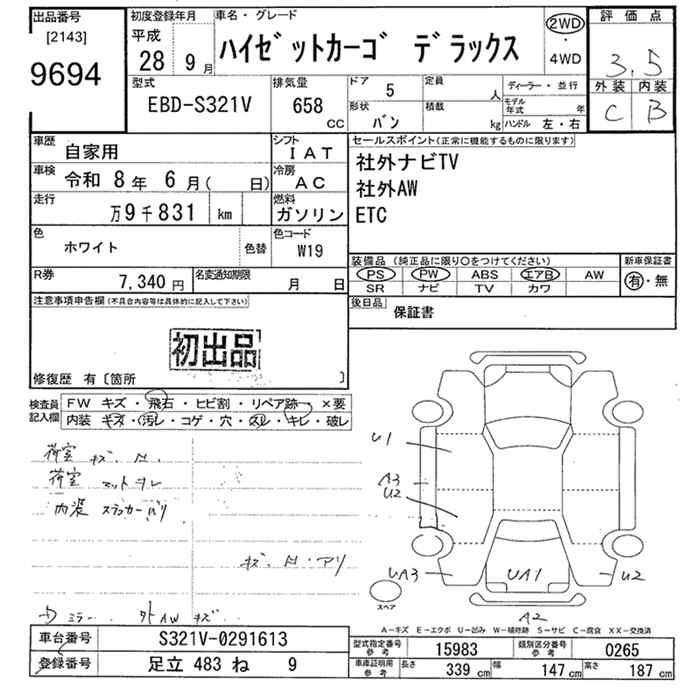 出品番号 初度登録年月 車名・グレード 2WD・4WD 評価点
[2143] 平成
9694 28年 9月 ハイゼットカーゴ デラックス 3.5
型式 排気量 ドア 定員 ディーラー・並行 外装 内装
EBD-S321V 658 CC 5 人 モデル年式 年 C B
形状 積載 ハンドル 左・右
バン kg
車歴 自家用 シフト IAT セールスポイント(正常に機能するものに限ります)
車検 令和 8年 6月( 日) 冷房 AC 社外ナビTV
走行 万9千831 km 燃料 ガソリン 社外AW
ETC
色 ホワイト 色替 色コード W19
装備品 (純正品に限り○をつけてください) 新車保証書
PS PW ABS エアB AW 有・無
SR ナビ TV カワ
R券 7,340円 名変通知期限 月 日
注意事項申告欄(不具合内容等は具体的に記入して下さい) 後日品 保証書
初出品
修復歴 有〔箇所 〕
検査員記入欄 FW キズ・飛石・ヒビ割・リペア跡・×要
内装 キズ・汚レ・コゲ・穴・スレ・キレ・破レ
荷室 キズ.
荷室
内装
キズ. ・アリ
ミラー. AW キズ.
U1
A3
U2
UA3 UA1 U2
スペア
A2
A-キズ E-エクボ U-凹み W-補修跡 S-サビ C-腐食 XX-交換済
車台番号 S321V-0291613 型式指定番号 参考 15983 類別区分番号 参考 0265
登録番号 足立 483 ね 9 車庫証明用 参考 長さ 339 cm 幅 147 cm 高さ 187 cm